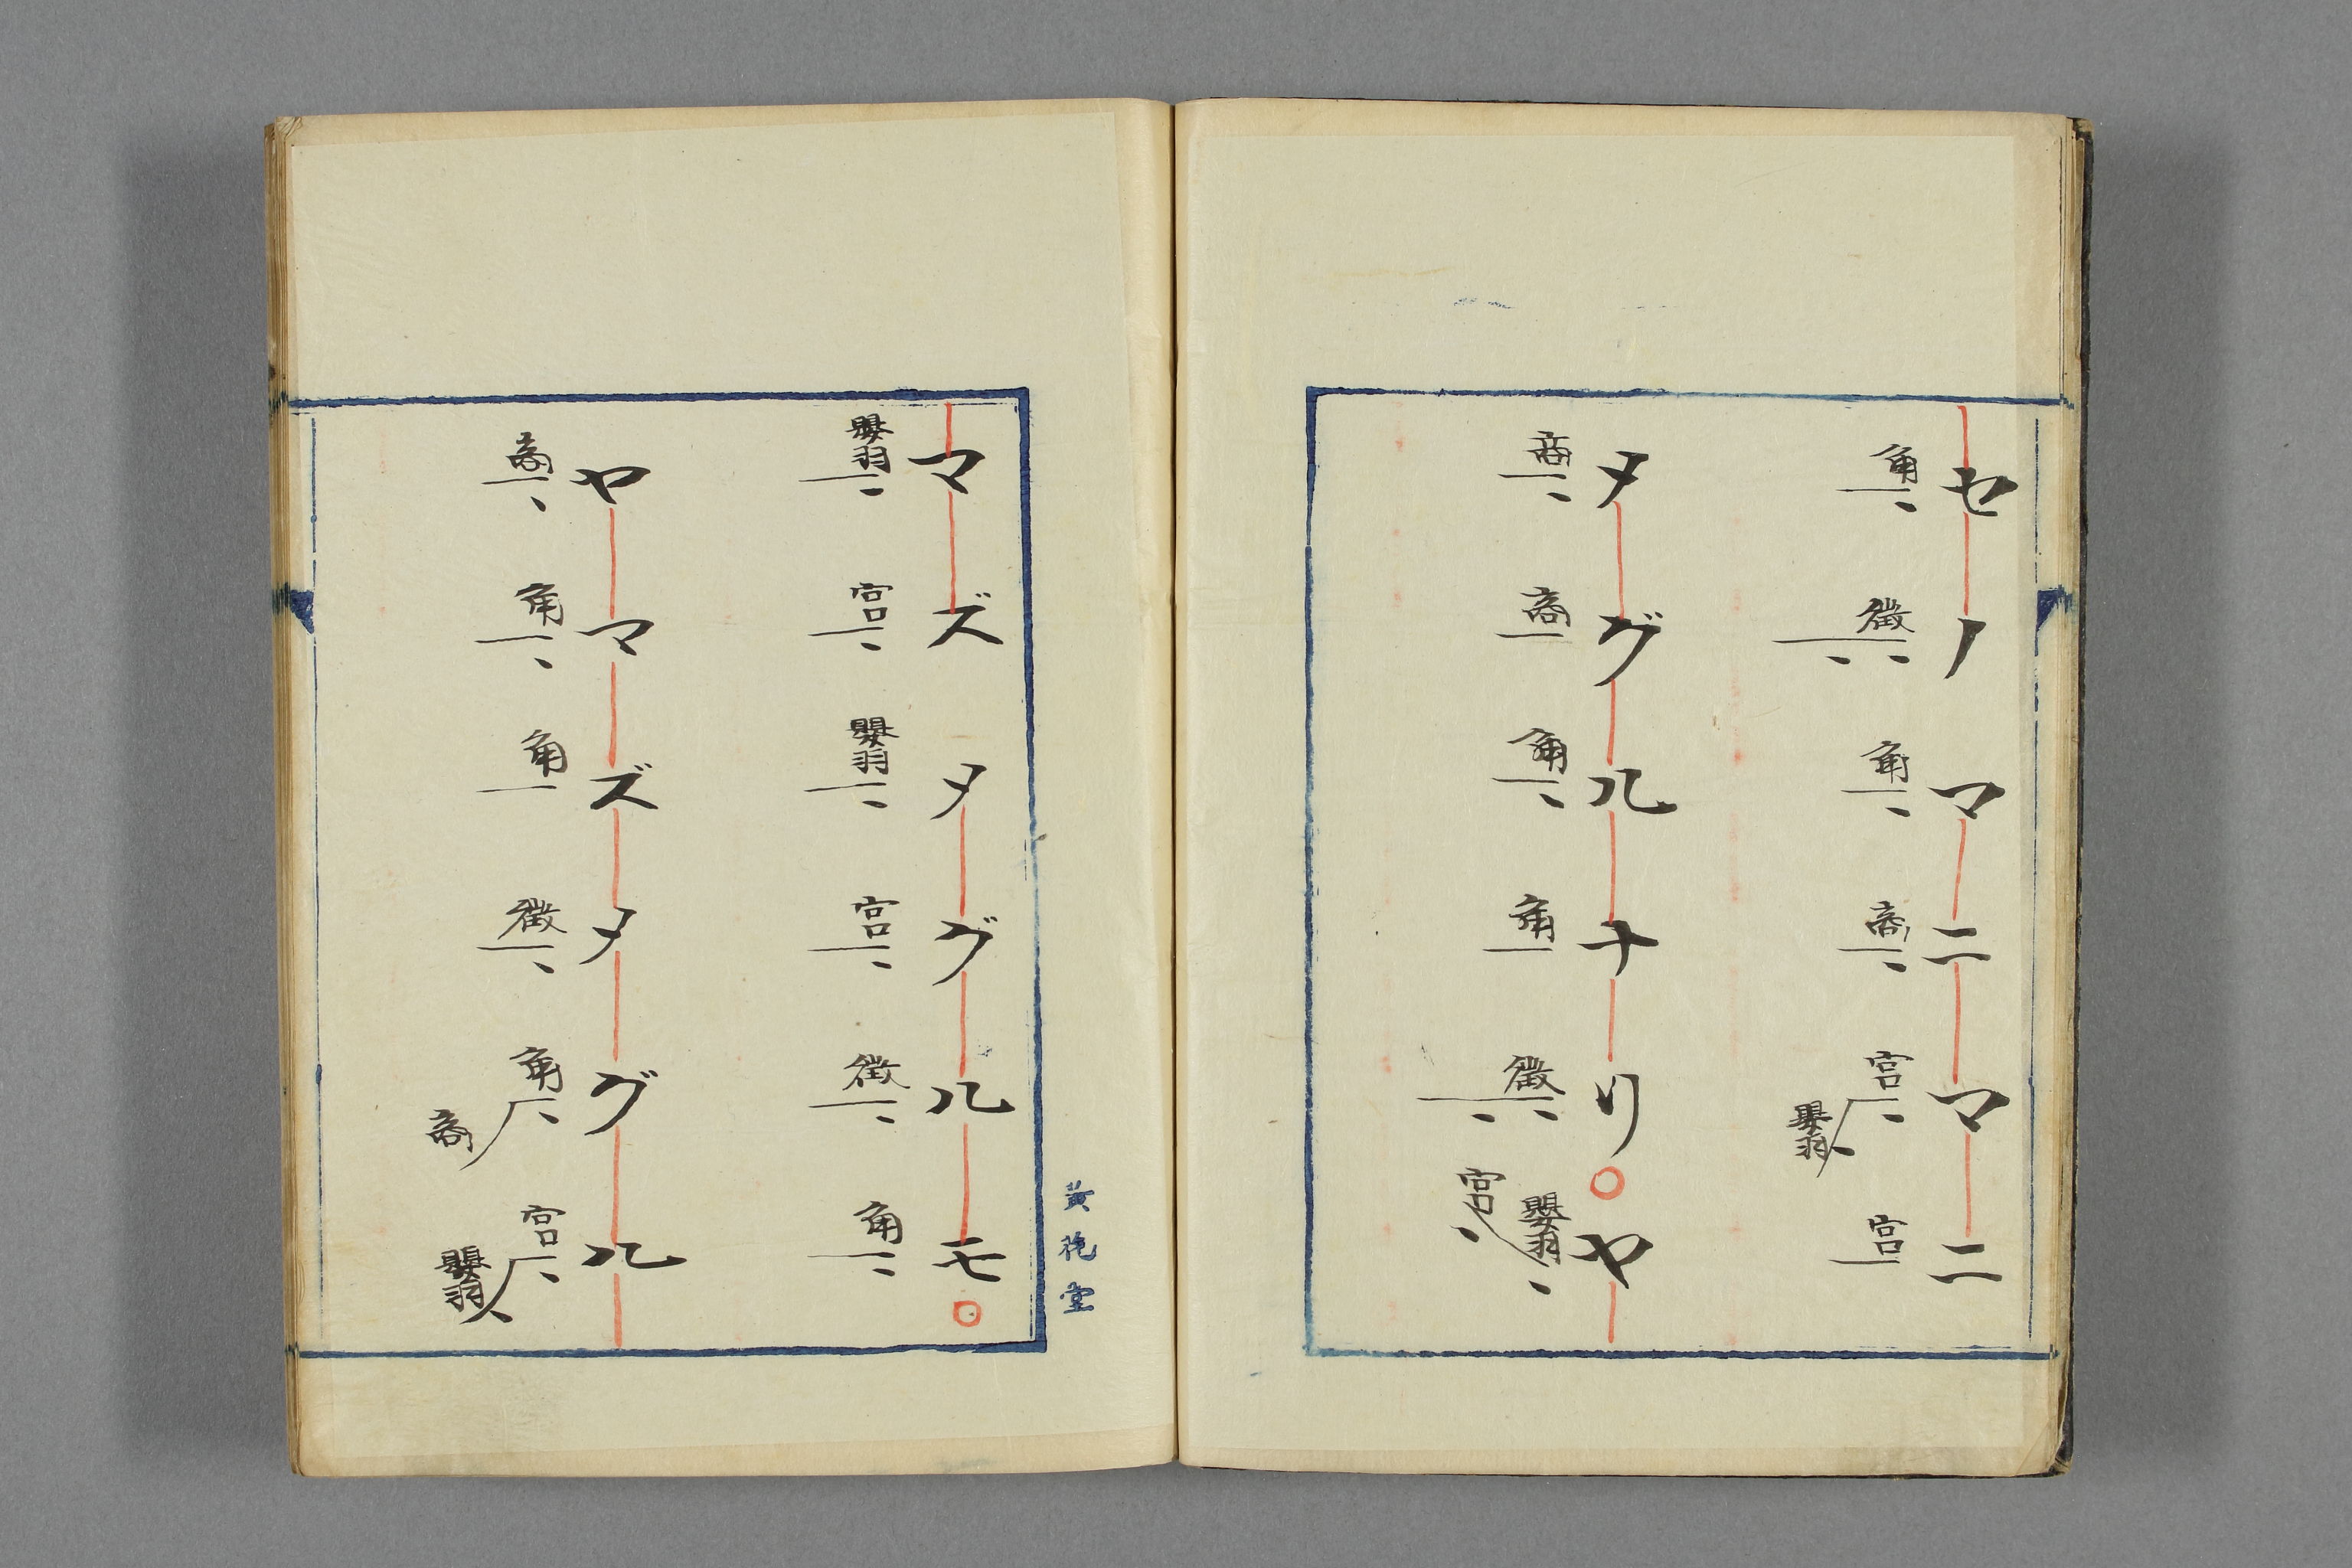 セノマニマニ
角徴角商宮嬰羽宮
タグルナリ○ヤ
商商角角徴嬰羽宮
マズタグルモ○
嬰羽宮嬰羽宮徴角
ヤマズタグル
商角角徴角商宮嬰羽